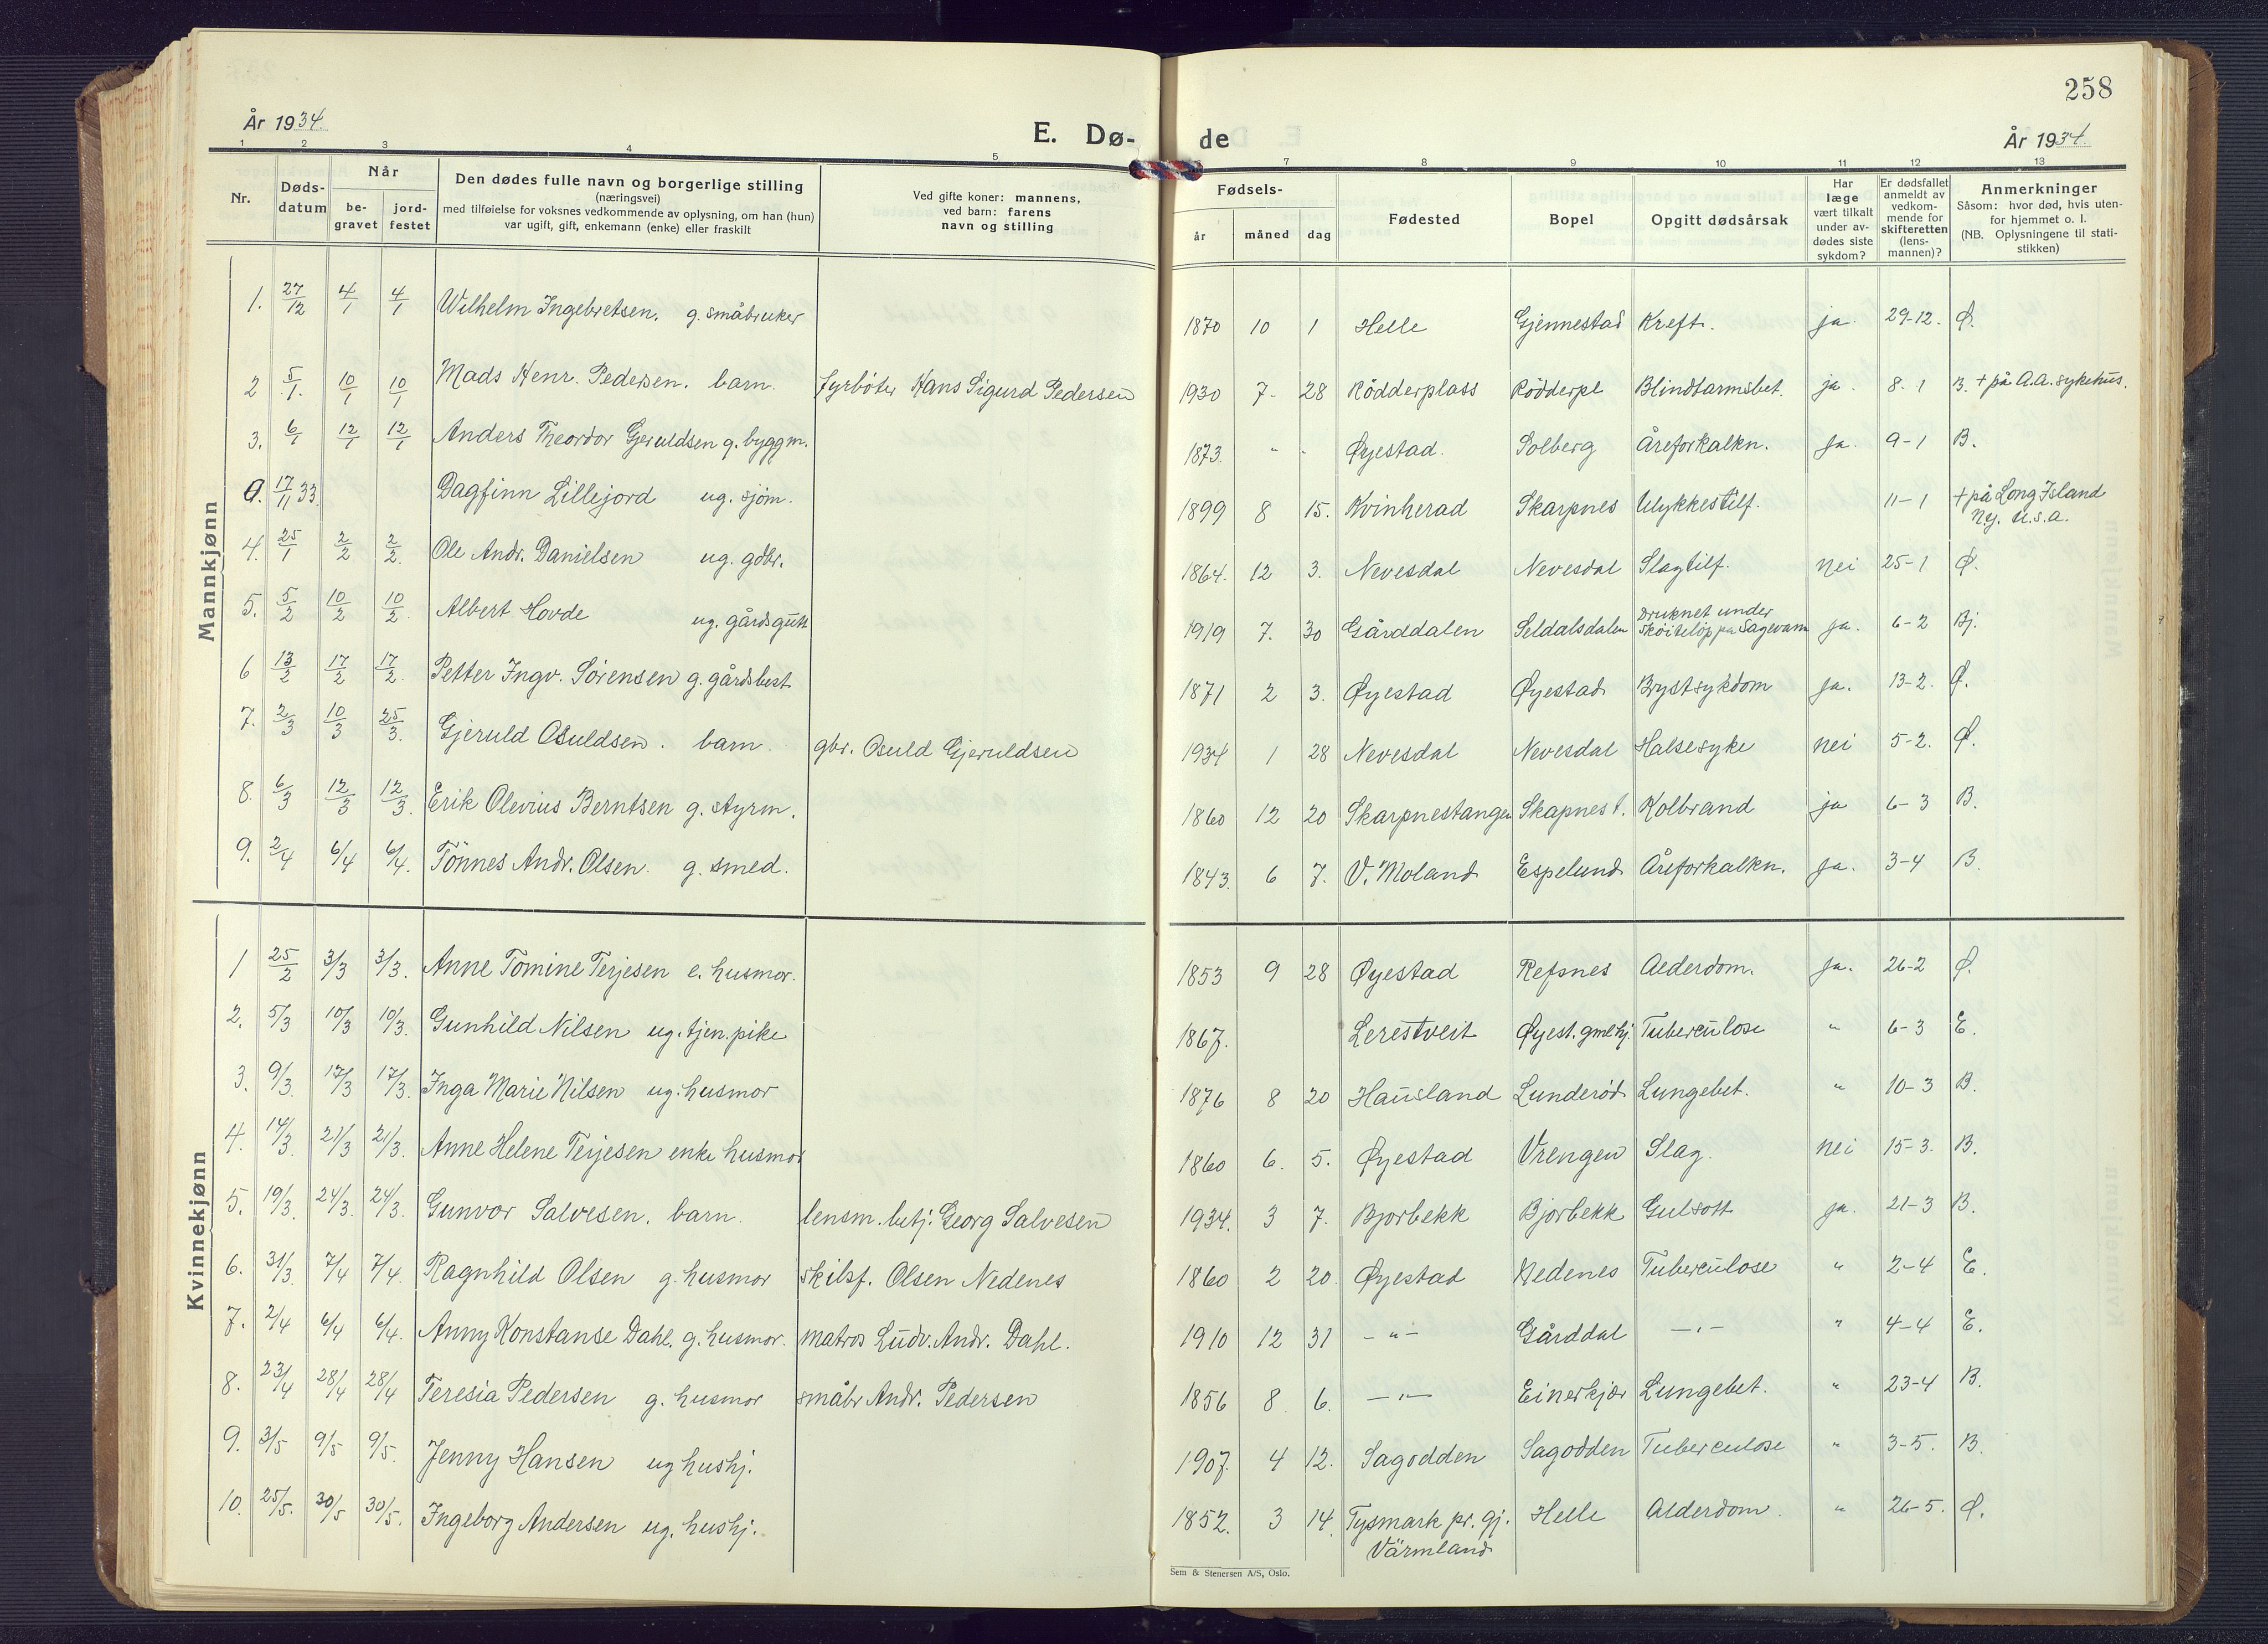 258
År 1934.
E. Dø-
de
År 1934.
1 2 3 4 5 7 8 9 10 11 12 13
Nr.
Døds-
datum
Når
be-
gravet
jord-
festet
Den dødes fulle navn og borgerlige stilling
(næringsvei)
med tilføielse for voksnes vedkommende av oplysning, om han (hun)
var ugift, gift, enkemann (enke) eller fraskilt
Ved gifte koner: mannens,
ved barn: farens
navn og stilling
Fødsels-
år måned dag
Fødested
Bopel
Opgitt dødsårsak
Har
læge
vært tilkalt
under av-
dødes siste
sykdom?
Er dødsfallet
anmeldt av
vedkom-
mende for
skifteretten
(lens-
mannen)?
Anmerkninger
Såsom: hvor død, hvis uten-
for hjemmet o. l.
(NB. Oplysningene til stati-
stikken)
Mannkjønn
1. 27/12 4/1 4/1 Wilhelm Ingebretsen. g. småbruker 1870 10 1 Helle Gjennestad Kreft. ja. 29-12. Ø.
2 5/1. 10/1 10/1 Mads Henr. Pedersen. barn. fyrbøter Hans Sigurd Pedersen 1930 7- 28 Rødderplass Rødderpl Blindtarmsbet. ja. 8-1 B. + på A.A. sykehus.
3. 6/1 12/1 12/1 Anders Theordor Gjeruldsen g. byggm. 1873. " " Øyestad. Solberg Åreforkalkn. ja. 9-1 B.
0. 17/11 33 Dagfinn Lillejord ug. sjøm. 1899 8 15. Kvinherad Skarpnes Ulykkestilf. 11-1 + på Long Island
Ny. U.S.A.
4. 25/1 2/2 2/2. Ole Andr. Danielsen ug. gdbr. 1864. 12 3. Nevesdal Nevesdal Slagtilf. nei 25-1 Ø.
5. 5/2 10/2 10/2. Albert Hovde ug. gårdsgutt 1919 7. 30 Gårddalen Seldalsdalen Druknet under
skøiteløp på Sagevann ja. 6-2 Bj.
6 13/2 17/2 17/2. Petter Ingv. Sørensen g. gårdsbest. 1871 2 3. Øyestad Øyestad Brystsykdom ja. 13-2. Ø.
7. 2/3 10/3 25/3. Gjeruld Osuldsen. barn. gbr. Osuld Gjeruldsen 1934 1 28 Nevesdal Nevesdal Halsesyke nei 5-2. Ø.
8. 6/3 12/3 12/3. Erik Olevius Berntsen g. styrm. 1860 12 20 Skarpnestangen Skapnest. Kolbrand ja 6-3 B.
9. 2/4 6/4 6/4. Tønnes Andr. Olsen. g. smed. 1843. 6 7. V. Moland Espelund Åreforkalkn. ja. 3-4 B.
Kvinnekjønn
1 25/2 3/3 3/3. Anne Tomine Terjesen e. husmor. 1853 9 28 Øyestad Refsnes Alderdom. ja. 26-2 Ø.
2. 5/3 10/3 10/3. Gunhild Nilsen ug. tjen. pike 1867. Lerestveit Øyest. gmlhj. Tuberculose " 6-3 E.
3. 9/3 17/3 17/3. Inga Marie Nilsen ug. husmor 1876 8 20 Hausland Lunderød Lungebet. " 10-3 B.
4. 14/3. 21/3 21/3. Anne Helene Terjesen enke husmor 1860 6. 5. Øyestad Vrengen Slag. nei 15-3. B.
5. 19/3. 24/3. 24/3. Gunvor Salvesen. barn. lensm. betj. Georg Salvesen 1934. 3 7. Bjorbekk Bjorbekk Gulsott ja. 21-3 B.
6. 31/3. 7/4 7/4. Ragnhild Olsen g. husmor skilsf. Olsen Nedenes 1860 2 20. Øyestad Nedenes Tuberculose " 2-4 E.
7. 2/4 6/4 6/4. Anny Konstanse Dahl. g. husmor. matros Ludv. Andr. Dahl. 1910 12 31 - " - Gårddal - " - " 4-4 E.
8. 23/4 28/4 28/4 Teresia Pedersen g. husmor småbr Andr. Pedersen 1856 8. 6. - " - Einerkjær Lungebet. " 23-4 B.
9. 3/5 9/5 9/5. Jenny Hansen ug hushj. 1907. 4 12. Sagodden Sagodden Tuberculose " 3-5. B.
10. 25/5. 30/5 30/5. Ingeborg Andersen ug. hushj. 1852. 3 14. Tysmark pr. gj.
Värmland Helle Alderdom. " 26-5. Ø.
Sem & Stenersen A/S, Oslo.